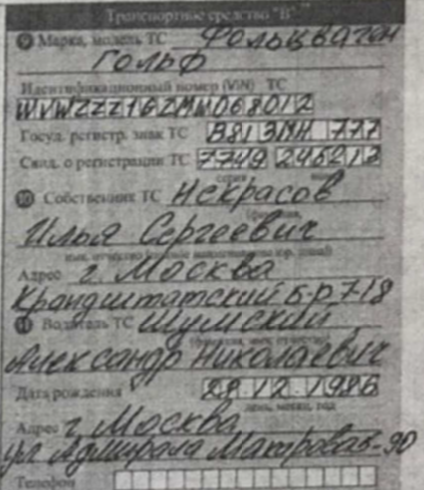 Транспортное средство "В"
9 Марка, модель ТС Фольцваген
Гольф
Идентификационный номер (VIN) ТС
WVWZZZ1GZMW068012
Госуд. регистр. знак ТС В813МН 777
Свид. о регистрации ТС 7749 245212
серия
10 Собственник ТС Некрасов
(фамилия,
Илья Сергеевич
Адрес г. Москва
Крандштатский б-р 7-18
11 Водитель ТС Шумский
Александр Николаевич
Дата рождения 28.12.1986
день, месяц, год
Адрес г. Москва
ул Адмирала Макарова
Телефон